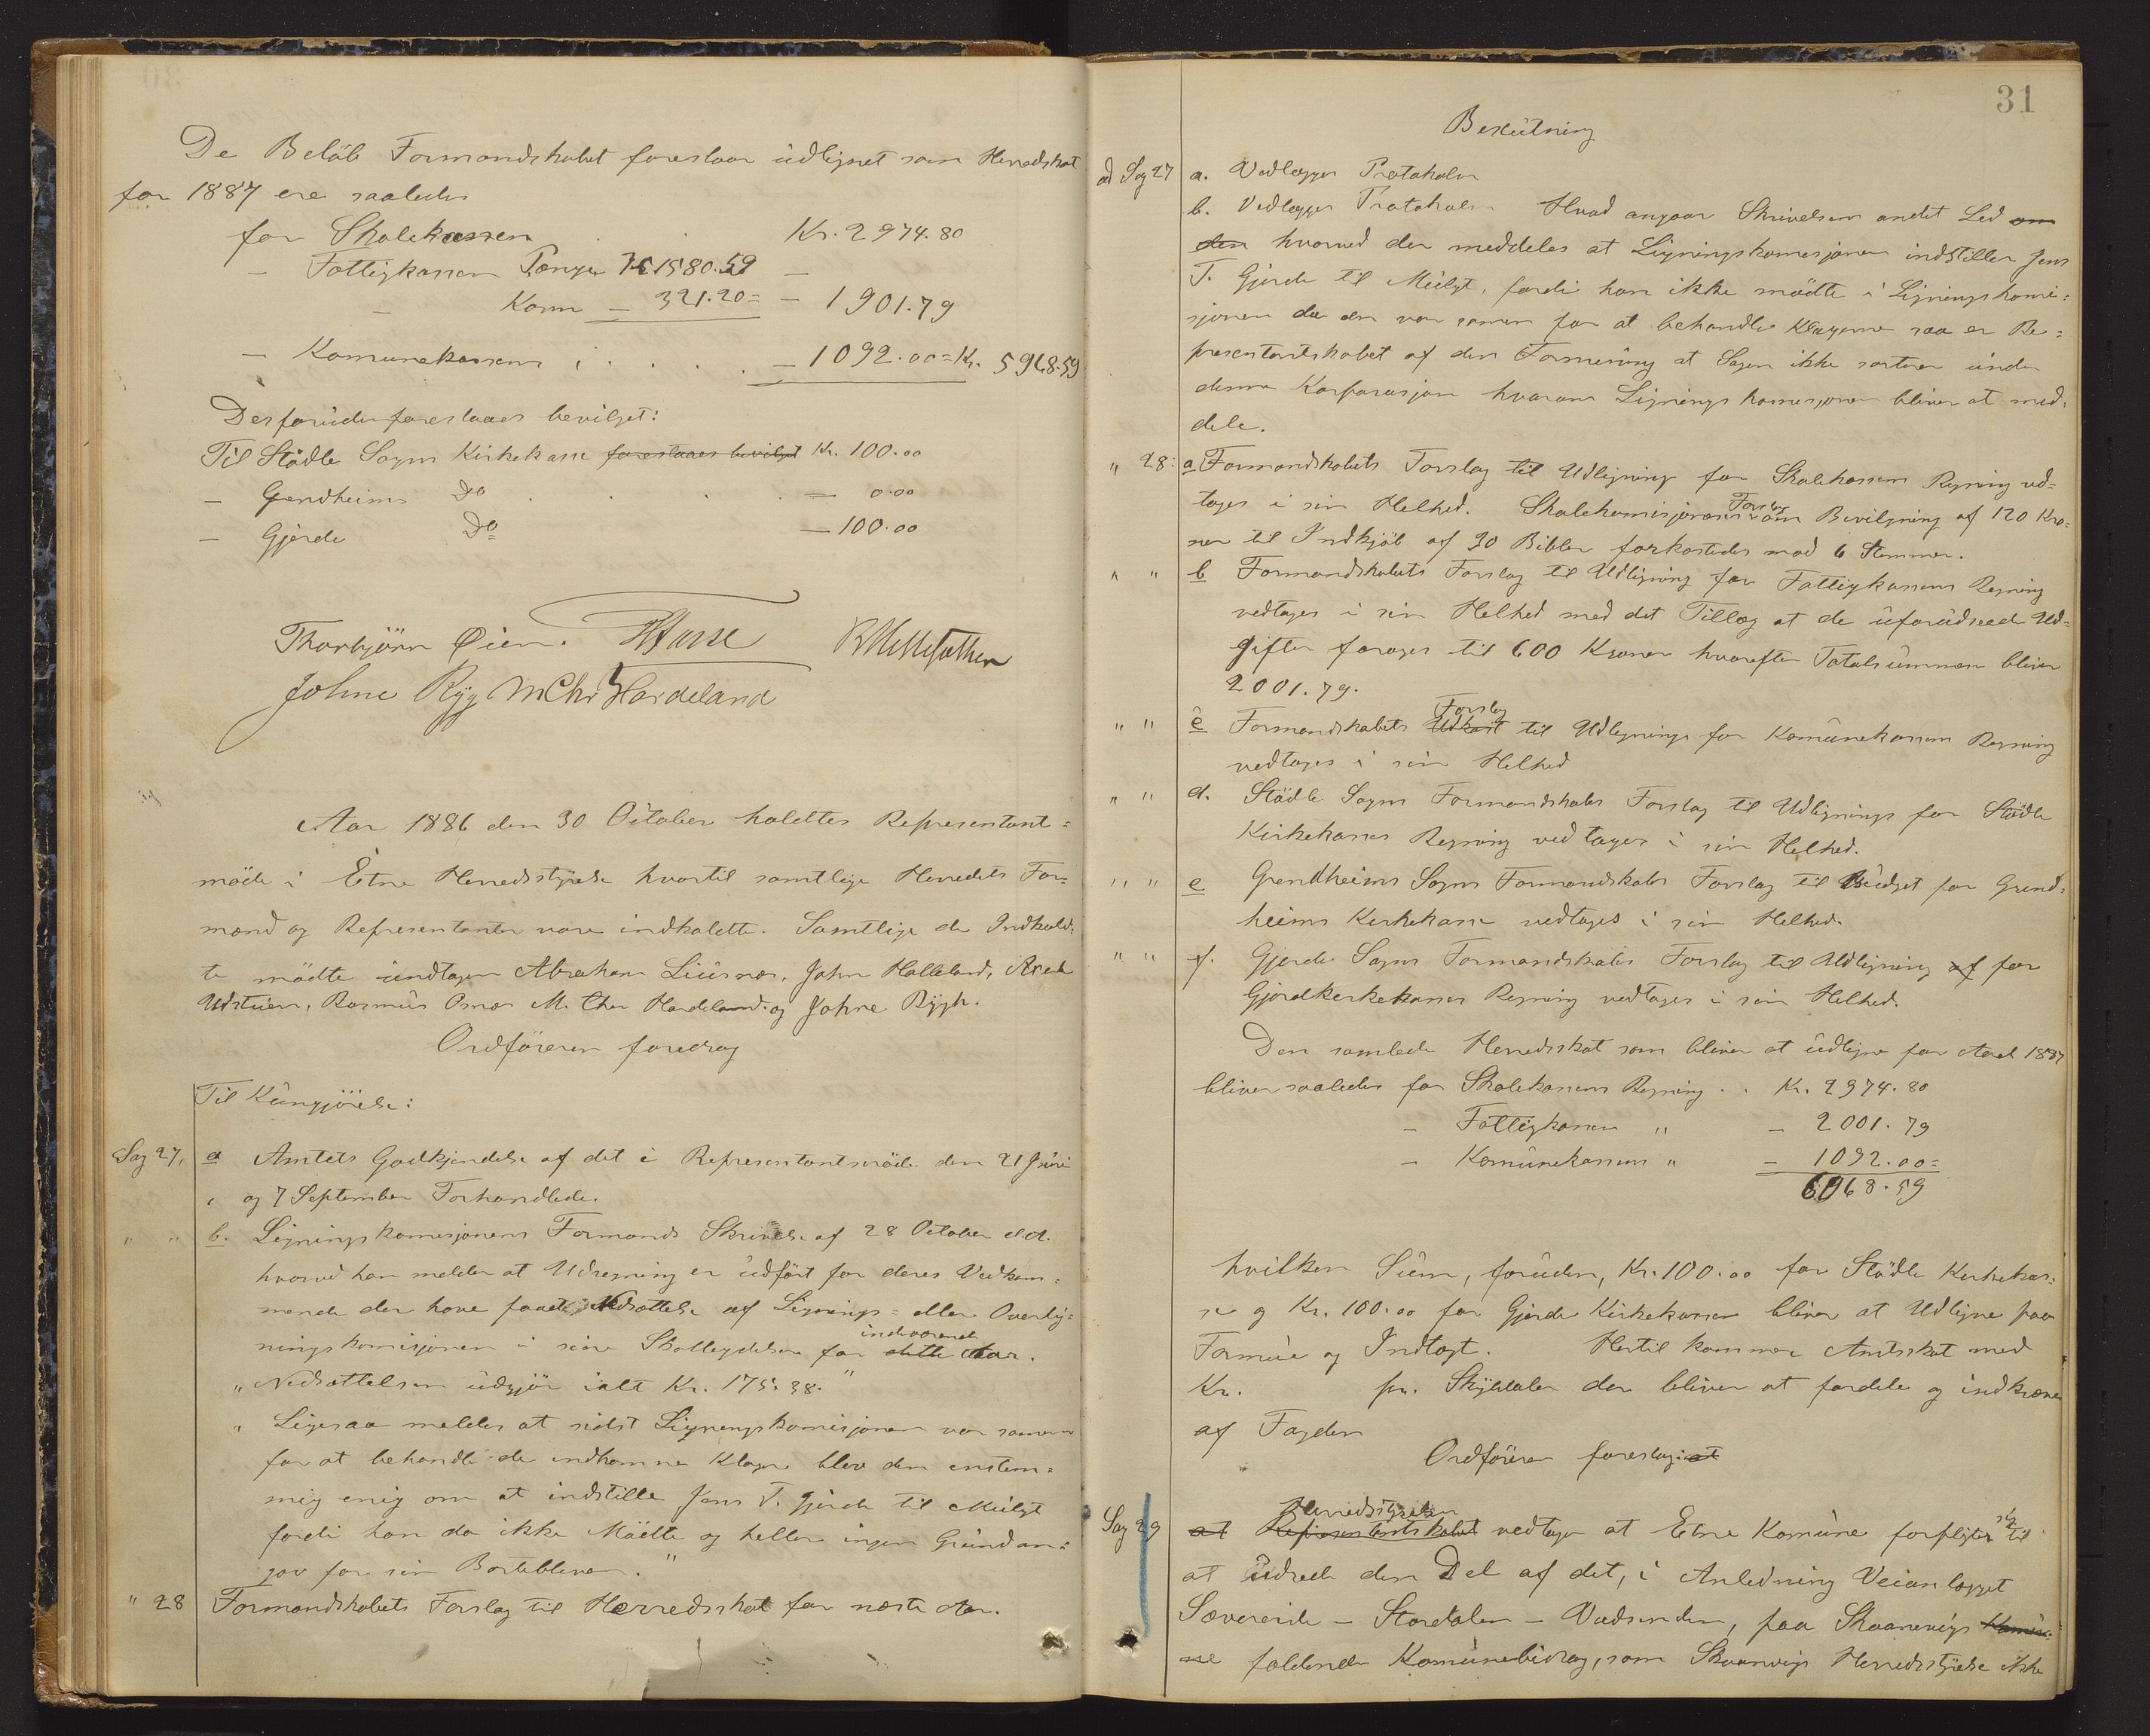 De Beløb Formandskabet foreslaar üdlignet som Herredskat
for 1887 ere saaledes
for Skolekassen . . . Kr. 2974.80
– Fattigkassen Penge Kr 1580.59 –
– Korn – 321.20 = – 1901.79
– Komünekassen i . . . . – 1092.00 = Kr. 5968.59
Desforüden foreslaaes bevilget:
Til Stødle Sogns Kirkekasse foreslaaes bevilget Kr. 100.00
– Grendheims Do . . . . – 0.00
– Gjerde Do – 100.00
Thorbjørn Øien. HHasse
Johne Ryg MChr Hardeland
Aar 1886 den 30 October holdtes Representant=
møde i Etne Herredsstyrelse hvortil samtlige Herredets For=
mænd og Representanter vare indkaldte. Samtlige de Indkald=
te mødte undtagen Abraham Liüsnes, John Halleland,
Udstüen, Rasmüs Osnes M. Chr Hardeland og Johne Rygh.
Ordføreren foredrog
Til Küngjørelse:
Sag 27, a Amtets Godkjendelse af det i Representantmøde den 21 Jüni
og 7 September Forhandlede.
" " b. Ligningskomisjonens Formands Skrivelse af 28 October d.A.
hvorved han melder at Udregning er üdført for deres Vedkom=
mende der have faaet Nedsættelse af Lignings= eller Overlig=
ningskomisjonen i sine Skatteydelser for dette indeværende Aar.
"Nedsættelsen üdgjør ialt Kr. 175.38."
" Ligesaa meldes at sidst Ligningskomisjonen var samen
for at behandle de indkomne Klager blev den enstem=
mig enig om at indstille Jens T. Gjerde til Mülgt
fordi han da ikke Mødte og heller ingen Gründ an=
gav for sin Borteblivен."
" 28 Formandskabets Forslag til Herredsskat for næste Aar.
31
Beslütning
ad Sag 27 a. Vedlægges Protokolen
b. Vedlægges Protokolen Hvad angaar Skrivelsens andet Led om
den hvorved der meddeles at Ligningskomisjonen indstiller Jens
T. Gjerde til Mülgt, fordi han ikke mødte i Ligningskomi=
sjonen da den var samen for at behandle Klagerne saa er Re=
presentantskabet af den Formening at Sagen ikke sorterer ünder
denne Korporasjon hvorom Ligningskomisjonen bliver at med=
dele.
" 28: a Formandskabets Forslag til Udligning for Skolekassens Regning ved=
tages i sin Helhed. Skolekomisjonens Forslag om Bevilgning af 120 Kro=
ner til Indkjøb af 30 Bibler forkastedes mod 6 Stemmer.
" " b Formandskabets Forslag til Udligning for Fattigkassens Regning
vedtages i sin Helhed med det Tillæg at de üforüdseede Ud=
gifter forøges til 600 Kroner hvorefter Totalsümmen bliver
2001.79.
" " c Formandskabets Udkast Forslag til Udligning for Komünekassens Regning
vedtages i sin Helhed
" " d. Stødle Sogns Formandskabs Forslag til Udligning for Stødle
Kirkekasses Regning vedtages i sin Helhed.
" " e Grendheims Sogns Formandskabs Forslag til Büdget for Grend=
heims Kirkekasse vedtages i sin Helhed.
" " f. Gjerde Sogns Formandskabs Forslag til Udligning af for
Gjerdkirkekasses Regning vedtages i sin Helhed.
Den samlede Herredsskat som bliver at üdligne for Aaret 1887
bliver saaledes for Skolekassens Regning . . Kr. 2974.80
– Fattigkassen " – 2001.79
– Komünekassens " – 1092.00 =
6068.59
hvilken Süm, forüden, Kr. 100.00 for Stødle Kirkekas=
se og Kr. 100.00 for Gjerde Kirkekasse bliver at Udligne paa
Formüe og Indtægt. Hertil kommer Amtsskat med
Kr. pr. Skylddaler der bliver at fordele og indkræve
af Fogden
Ordføreren foreslog: at
Sag 29 at Representantskabet Herredsstyrelsen vedtager at Etne Komüne forpligter sig til
at üdrede den Del af det, i Anledning Veianlægget
Sævereide – Stordalen – Vadsenden, paa Skaanevigs Komü=
ne faldende Komünebidrag, som Skaanevigs Herredsstyrelse ikke